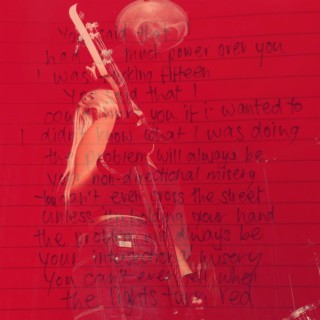 You said that I
had so much power over you
I was fucking fifteen
You said that I
could you if i wanted to
I didn't know what I was doing
the problem will always be
your non-directional misery
You can't even cross the street
unless holding your hand
the problem will always be
your misery
You can't even tell when
the lights turn red